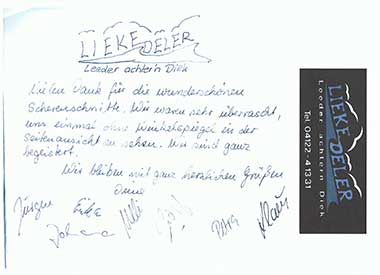 LIEKEDELER
Leeder achter'n Diek
Vielen Dank für die wunderschönen
Scherenschnitte. Wir waren sehr überrascht,
uns einmal ohne Winkelspiegel in der
Seitenansicht zu sehen. Wir sind ganz
begeistert.
Wir bleiben mit ganz herzlichen Grüßen
Jürgen Eike Petra Klaus
LIEKEDELER
Leeder achter'n Diek
Tel. 04122-41331